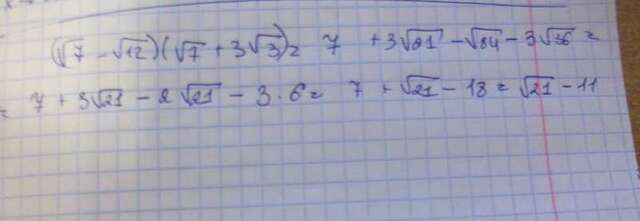 (√7 - √12)(√7 + 3√3) = 7 + 3√21 - √84 - 3√36 =
= 7 + 3√21 - 2√21 - 3·6 = 7 + √21 - 18 = √21 - 11